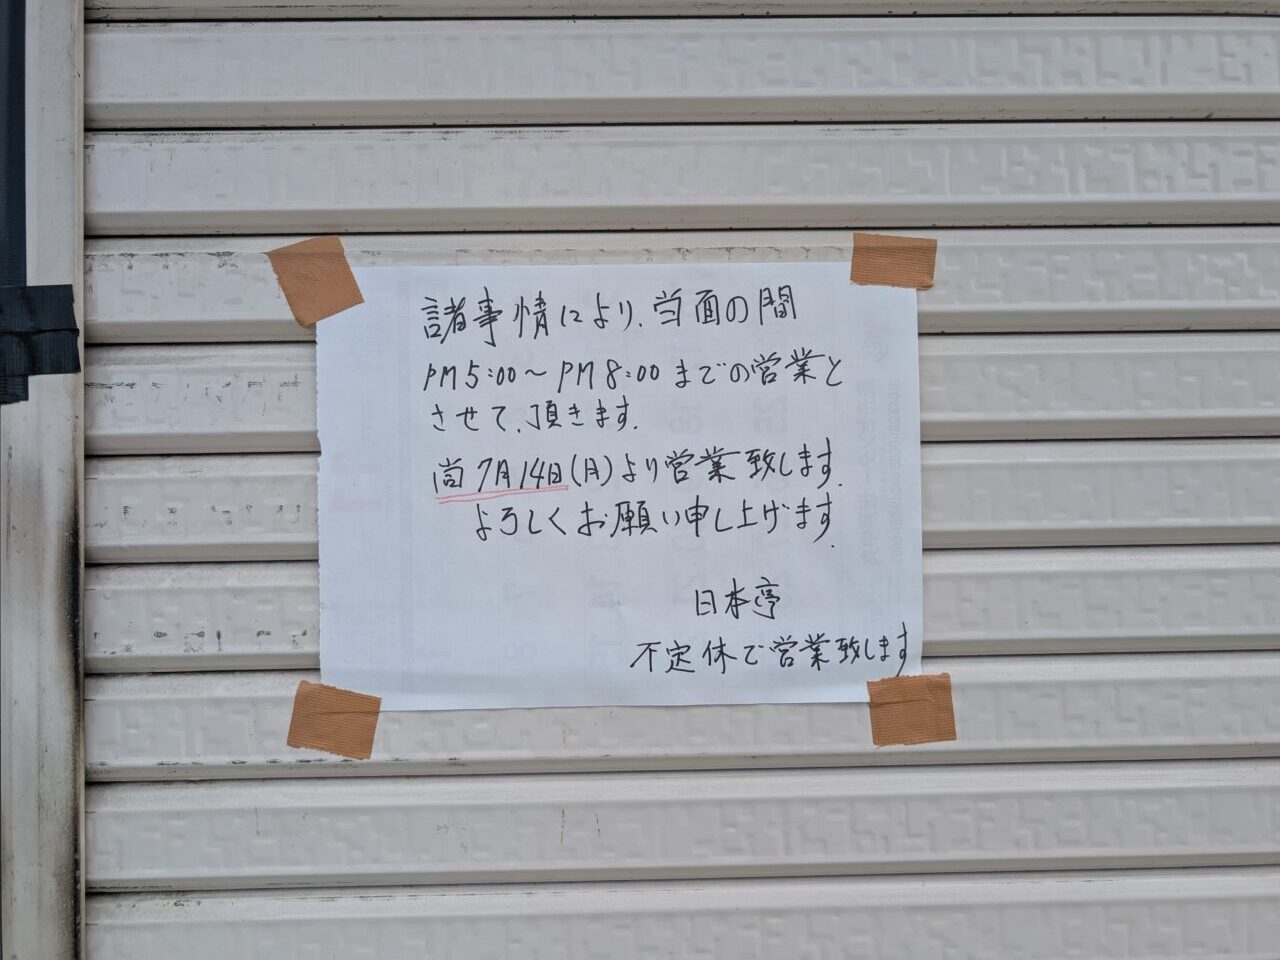 諸事情により、当面の間
PM5:00〜PM8:00までの営業と
させて、頂きます.
尚7月14日(月)より営業致します.
よろしくお願い申し上げます.
日本亭
不定休で営業致します